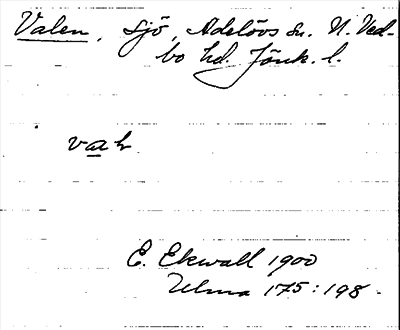 Valen, sjö, Adelövs sn. N. Ved-
bo hd. Jönk. l.
E. Ekwall 1900
Ulma 175:198.